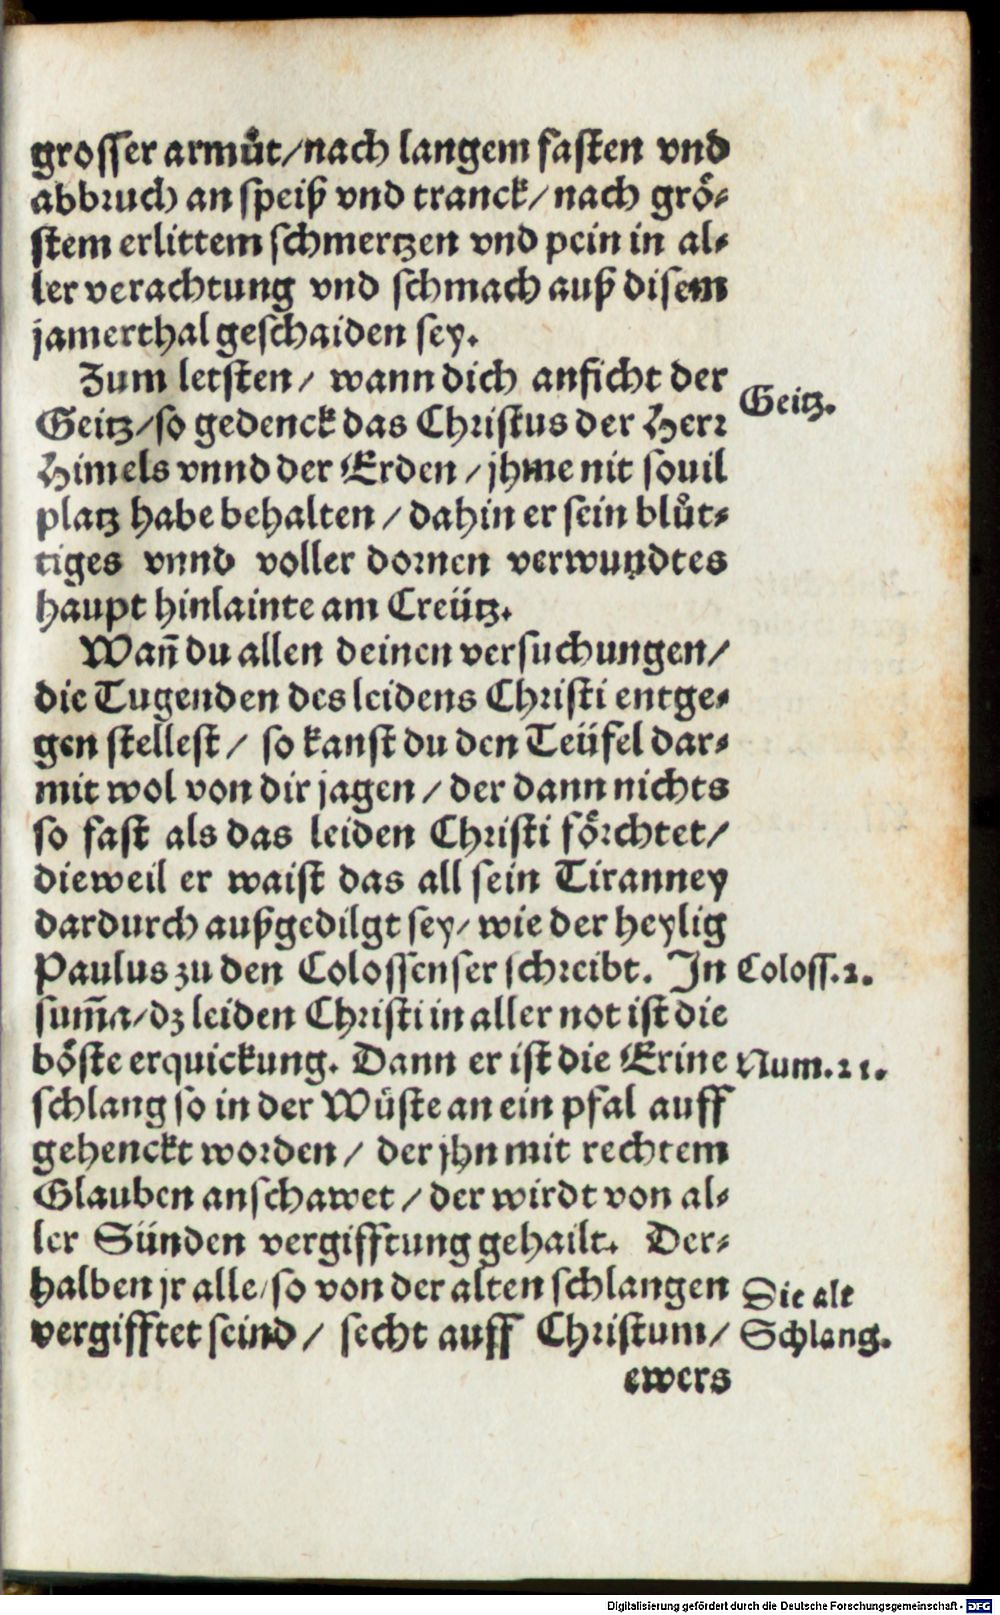 grosser armůt/nach langem fasten vnd
abbruch an speiß vnd tranck/ nach grö-
stem erlittem schmertzen vnd pein in al-
ler verachtung vnd schmach auß disem
jamerthal geschaiden sey.
Zum letsten/ wann dich anficht der
Geitz.
Geitz/so gedenck das Christus der Herr
Himels vnnd der Erden/ jhme nit souil
platz habe behalten/ dahin er sein blůt-
tiges vnnd voller dornen verwundtes
haupt hinlainte am Creütz.
Wañ du allen deinen versuchungen/
die Tugenden des leidens Christi entge-
gen stellest/ so kanst du den Teüfel dar-
mit wol von dir jagen/ der dann nichts
so fast als das leiden Christi förchtet/
dieweil er waist das all sein Tiranney
dardurch außgedilgt sey/ wie der heylig
Paulus zu den Colossenser schreibt. In
Coloss.2.
sum̃a/dz leiden Christi in aller not ist die
böste erquickung. Dann er ist die Erine
Num.21.
schlang so in der Wüste an ein pfal auff
gehenckt worden/ der jhn mit rechtem
Glauben anschawet/ der wirdt von al-
ler Sünden vergifftung gehailt. Der-
halben jr alle/so von der alten schlangen
Die alt
vergifftet seind/ secht auff Christum/
Schlang.
ewers
Digitalisierung gefördert durch die Deutsche Forschungsgemeinschaft - DFG